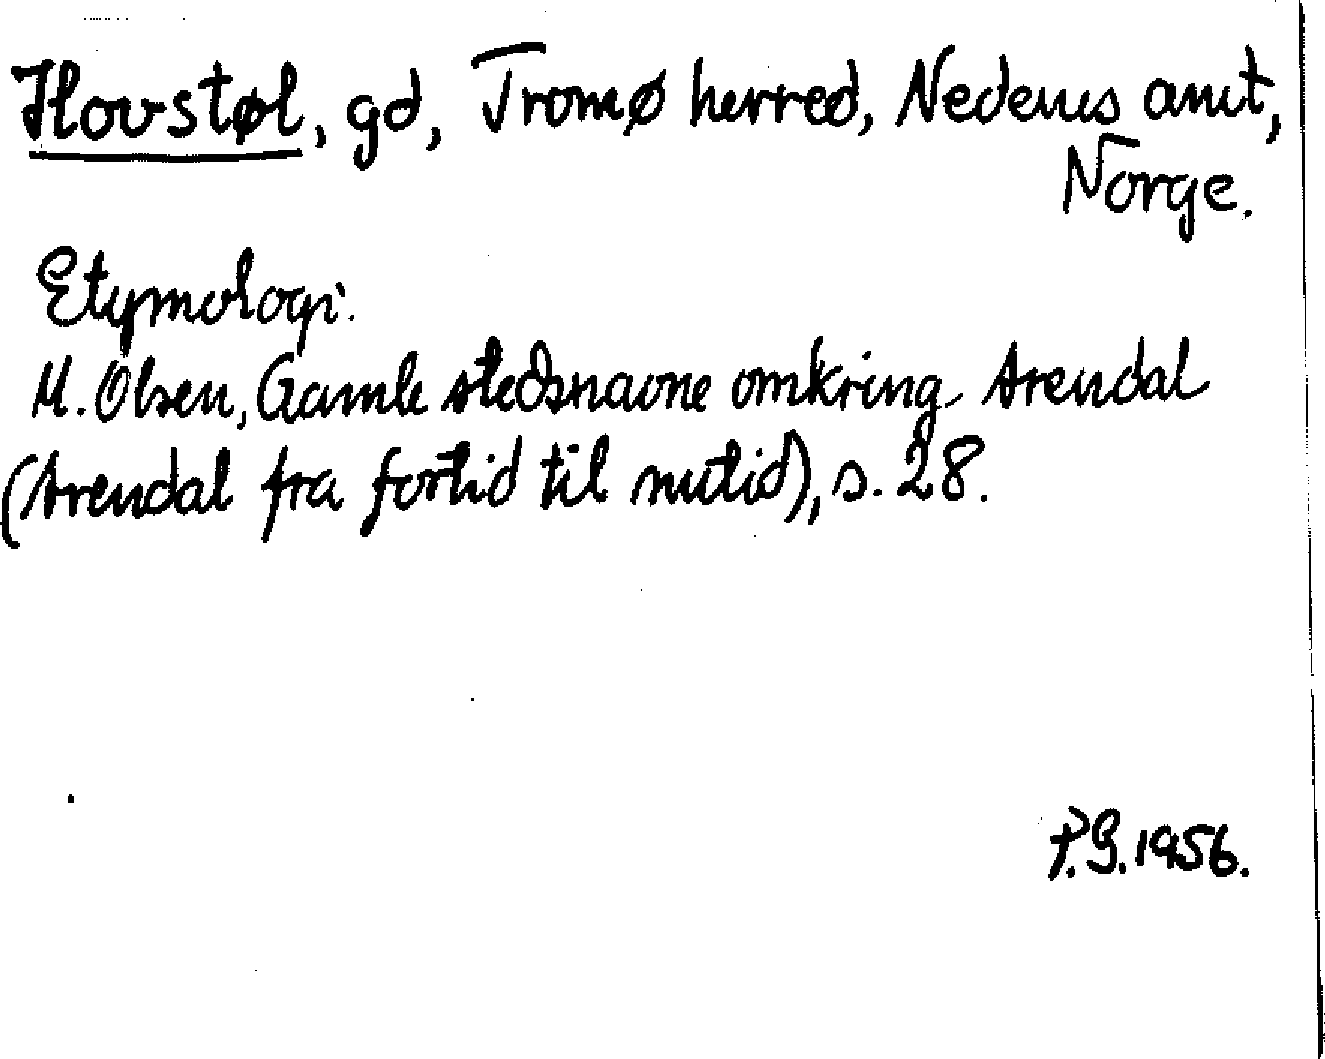 Hovstøl, gd, Tromø herred, Nedenes amt,
Norge.
Etymologi.
M. Olsen, Gamle stedsnavne omkring Arendal
(Arendal fra fortid til nutid), s. 28.
P.G. 1956.